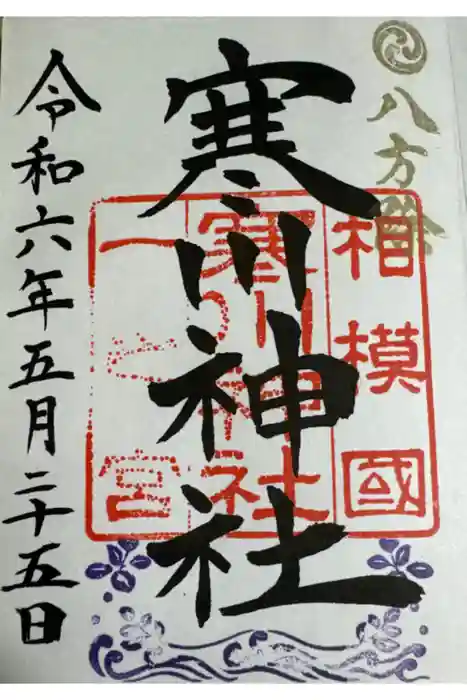 八方除
寒川神社
相模國
寒川神社
一之宮
令和六年五月二十五日